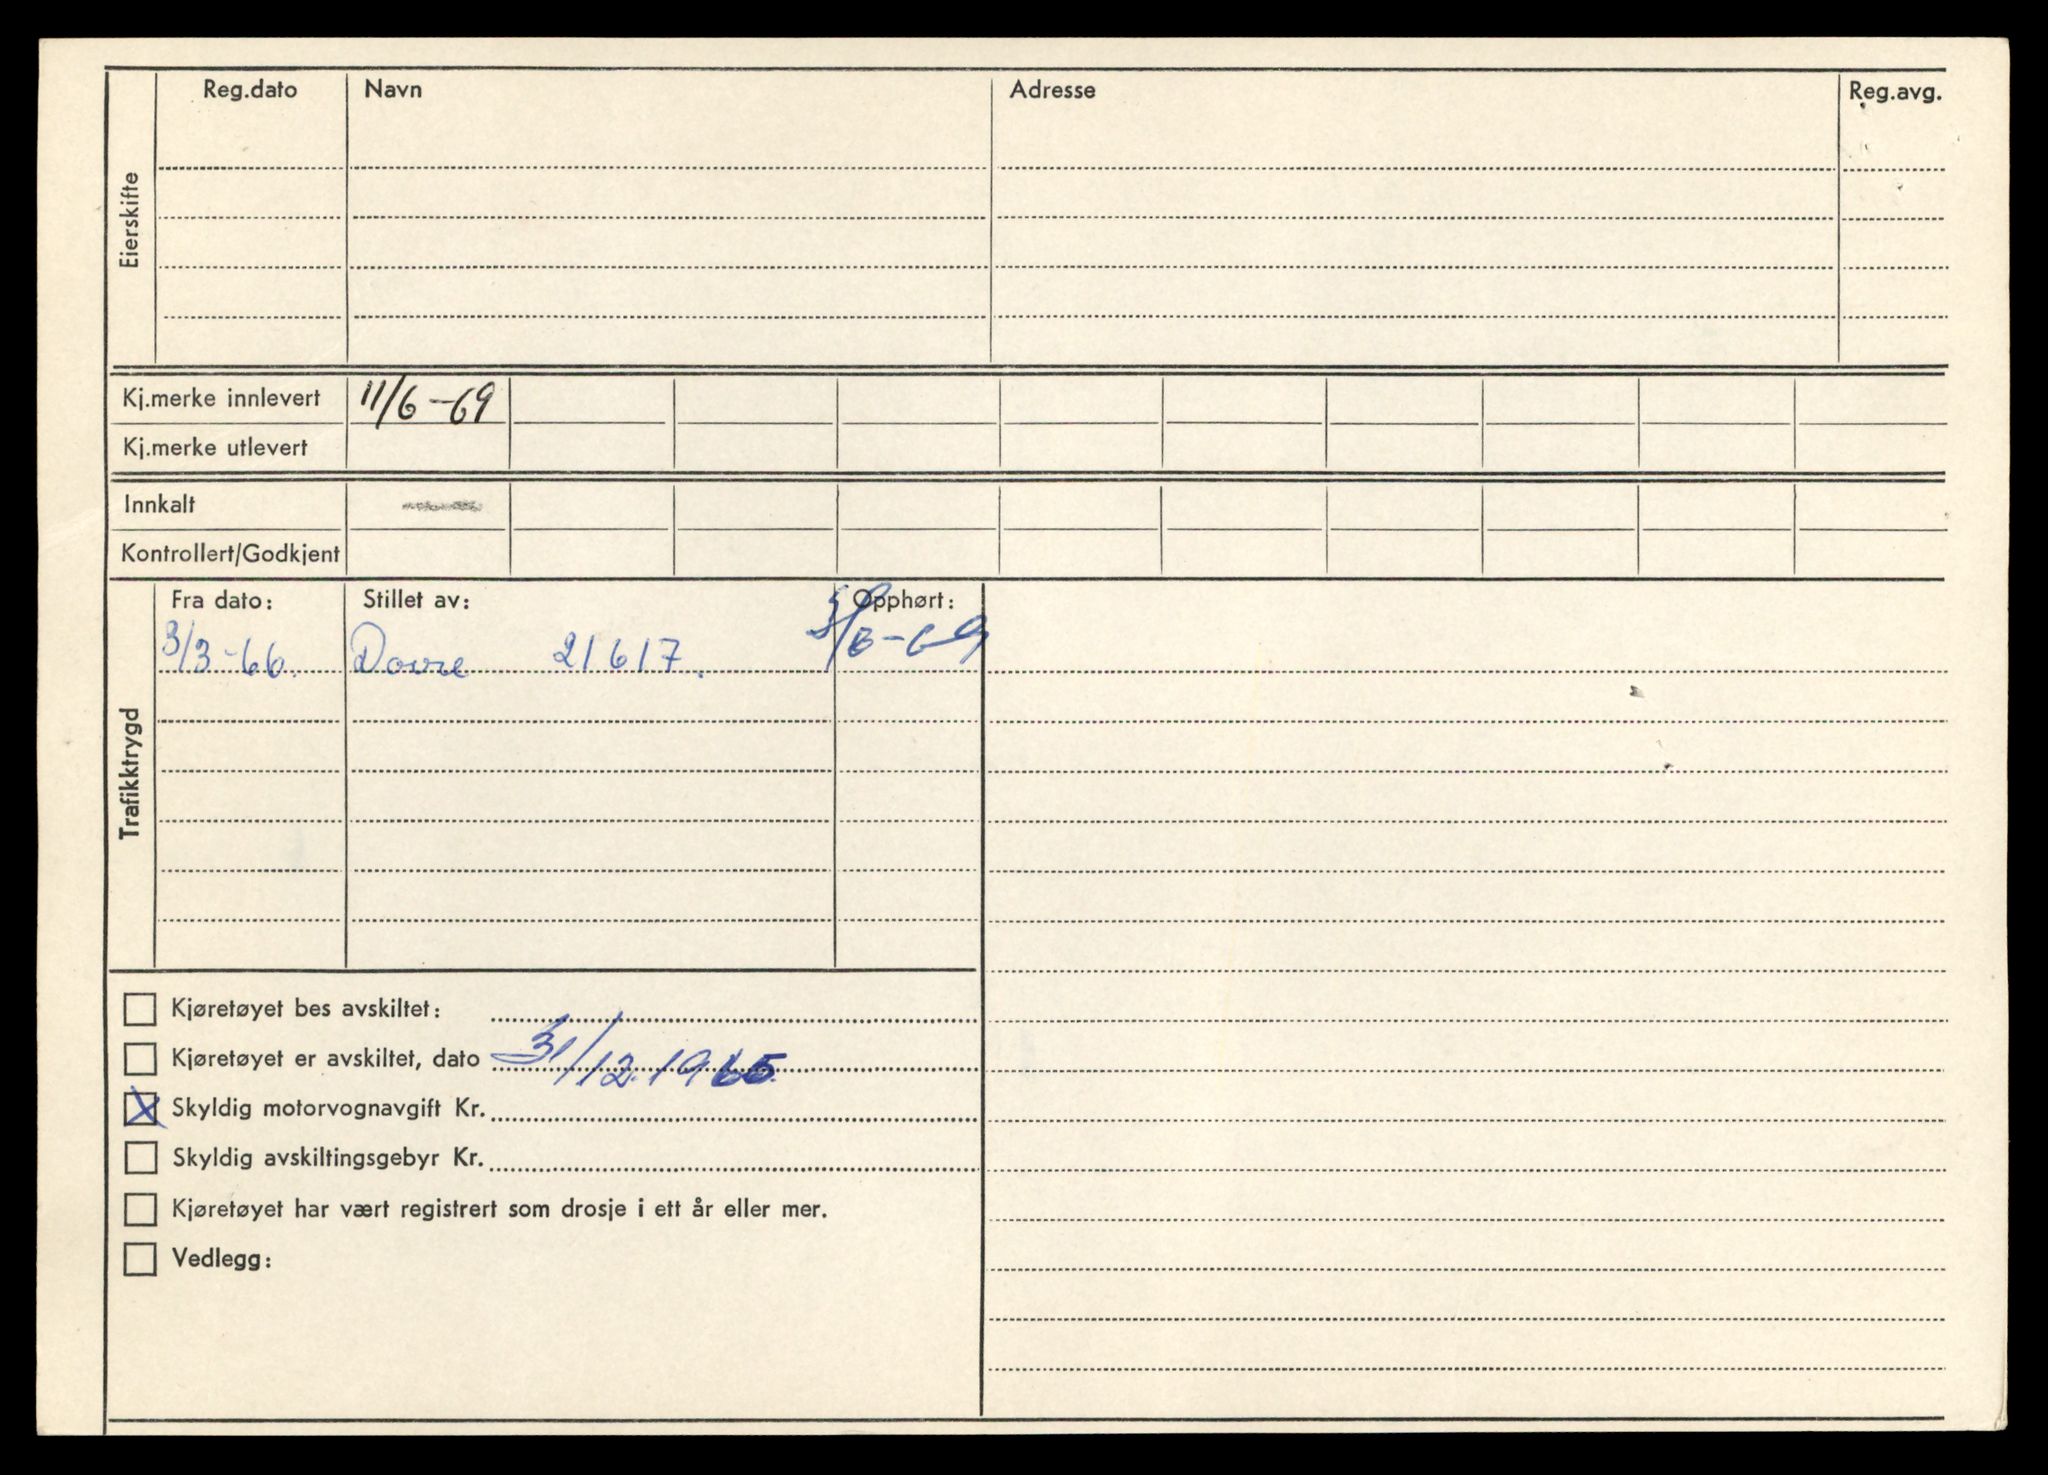 Eierskifte
Reg.dato Navn Adresse Reg.avg.
Kj.merke innlevert 11/6-69
Kj.merke utlevert
Innkalt
Kontrollert/Godkjent
Trafikktrygd
Fra dato: Stillet av: Opphørt:
3/3-66. Dovre 21617. 5/6-69
Kjøretøyet bes avskiltet:
Kjøretøyet er avskiltet, dato 31/12.1965.
X Skyldig motorvognavgift Kr.
Skyldig avskiltingsgebyr Kr.
Kjøretøyet har vært registrert som drosje i ett år eller mer.
Vedlegg: